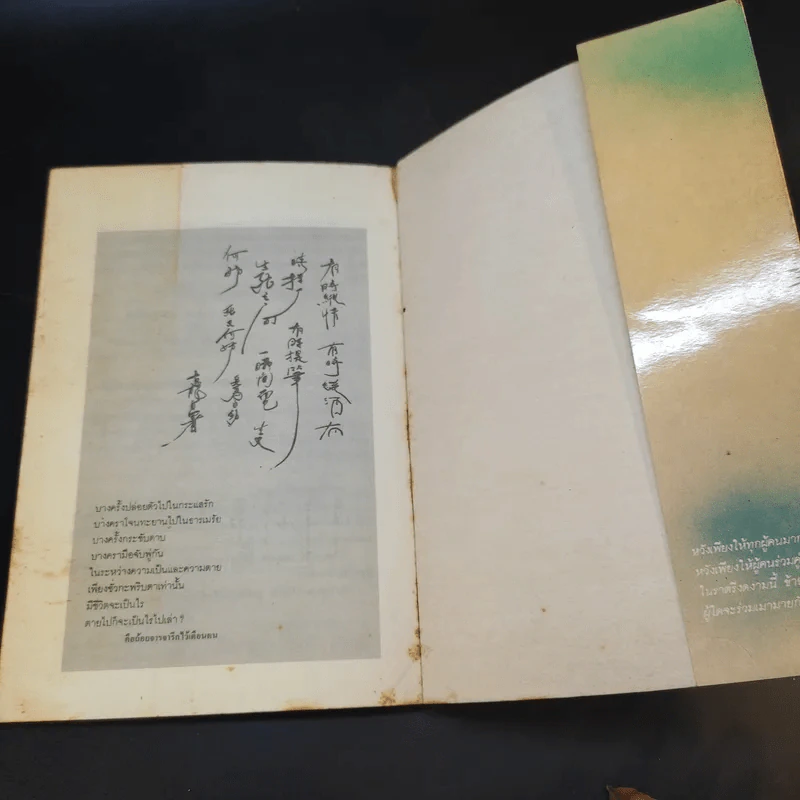 有時縱情 有時縱酒 有
時 有時提筆
生死之間 一瞬間 生又
何妨 死又何妨
บางครั้งปล่อยตัวไปในกระแสรัก
บางคราใจนทะยานไปในธารเมรัย
บางครั้งกระชับดาบ
บางครามือจับพู่กัน
ในระหว่างความเป็นและความตาย
เพียงชั่วกะพริบตาเท่านั้น
มีชีวิตจะเป็นไร
ตายไปก็จะเป็นไรไปเล่า ?
คือถ้อยอาจารึกไว้เตือนตน
หวังเพียงให้ทุกผู้คนมา
หวังเพียงให้ผู้คนร่วม
ในราตรีงดงามนี้
ผู้ใดจะร่วมเมามาย